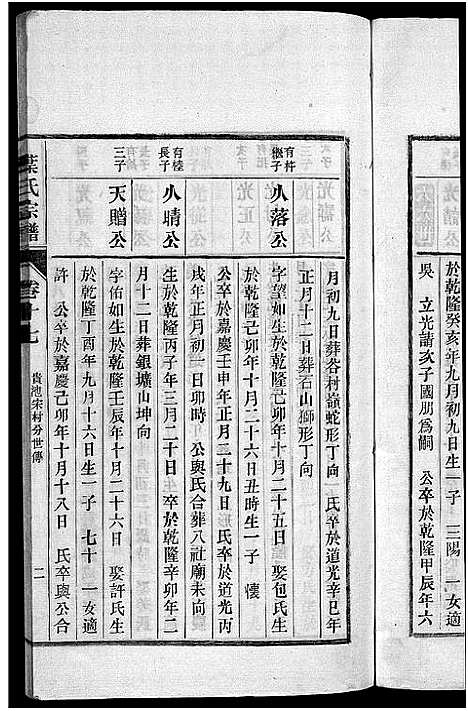 於乾隆癸亥年九月初九日生一子　三陽　一女適
吳　立光請次子國朋爲嗣　公卒於乾隆甲辰年六
月初九日葬谷村嶺蛇形丁向　氏卒於道光辛巳年
正月十二日葬石山獅形丁向
有杵
繼子
八落公
字望如生於乾隆己卯年十月二十五日娶包氏生
於乾隆己卯年十月二十六日丑時生一子　懷
公卒於嘉慶壬申年正月三十九日氏卒於道光丙
戌年正月初一日卯時　公與氏合葬八社廟未向
有榛
長子
八晴公
生於乾隆丙子年三月二十日　卒於乾隆辛卯年二
月十二日葬銀壙山坤向
三子
天贈公
字佑如生於乾隆壬辰年十月二十六日　娶許氏生
於乾隆丁酉年九月十六日生一子　七十　一女適
許　公卒於嘉慶己卯年十月十八日　氏卒與公合
葉氏宗譜
卷十七
貴池宋村分世傳
二